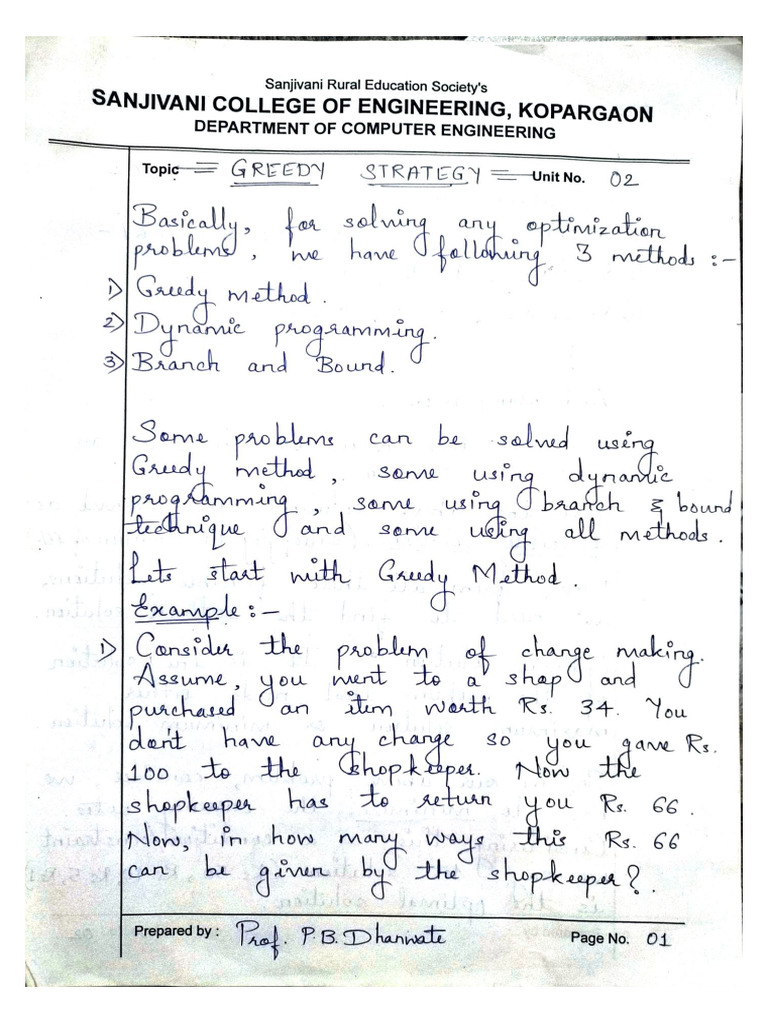 Sanjivani Rural Education Society's
SANJIVANI COLLEGE OF ENGINEERING, KOPARGAON
DEPARTMENT OF COMPUTER ENGINEERING
Topic GREEDY STRATEGY Unit No. 02
Basically, for solving any optimization
problems, we have following 3 methods :-
1) Greedy method.
2) Dynamic programming.
3) Branch and Bound.
Some problems can be solved using
Greedy method, some using dynamic
programming, some using branch & bound
technique and some using all methods.
Lets start with Greedy Method.
Example :-
1) Consider the problem of change making.
Assume, you went to a shop and
purchased an item worth Rs. 34. You
don't have any change so you gave Rs.
100 to the shopkeeper. Now the
shopkeeper has to return you Rs. 66.
Now, in how many ways this Rs. 66
can be given by the shopkeeper?.
Prepared by : Prof. P.B. Dhanwate Page No. 01